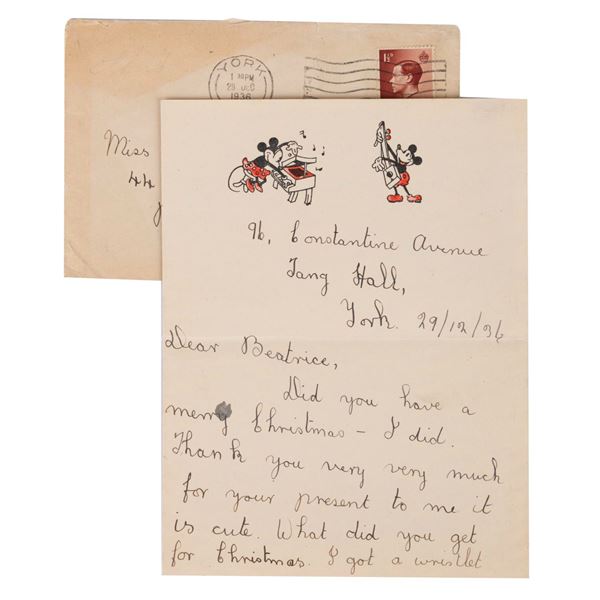 YORK
1 30PM
29 DEC
1936
1½D
Miss
44
96, Constantine Avenue
Tang Hall,
York. 29/12/36
Dear Beatrice,
Did you have a
merry Christmas – I did.
Thank you very very much
for your present to me it
is cute. What did you get
for Christmas. I got a wristlet